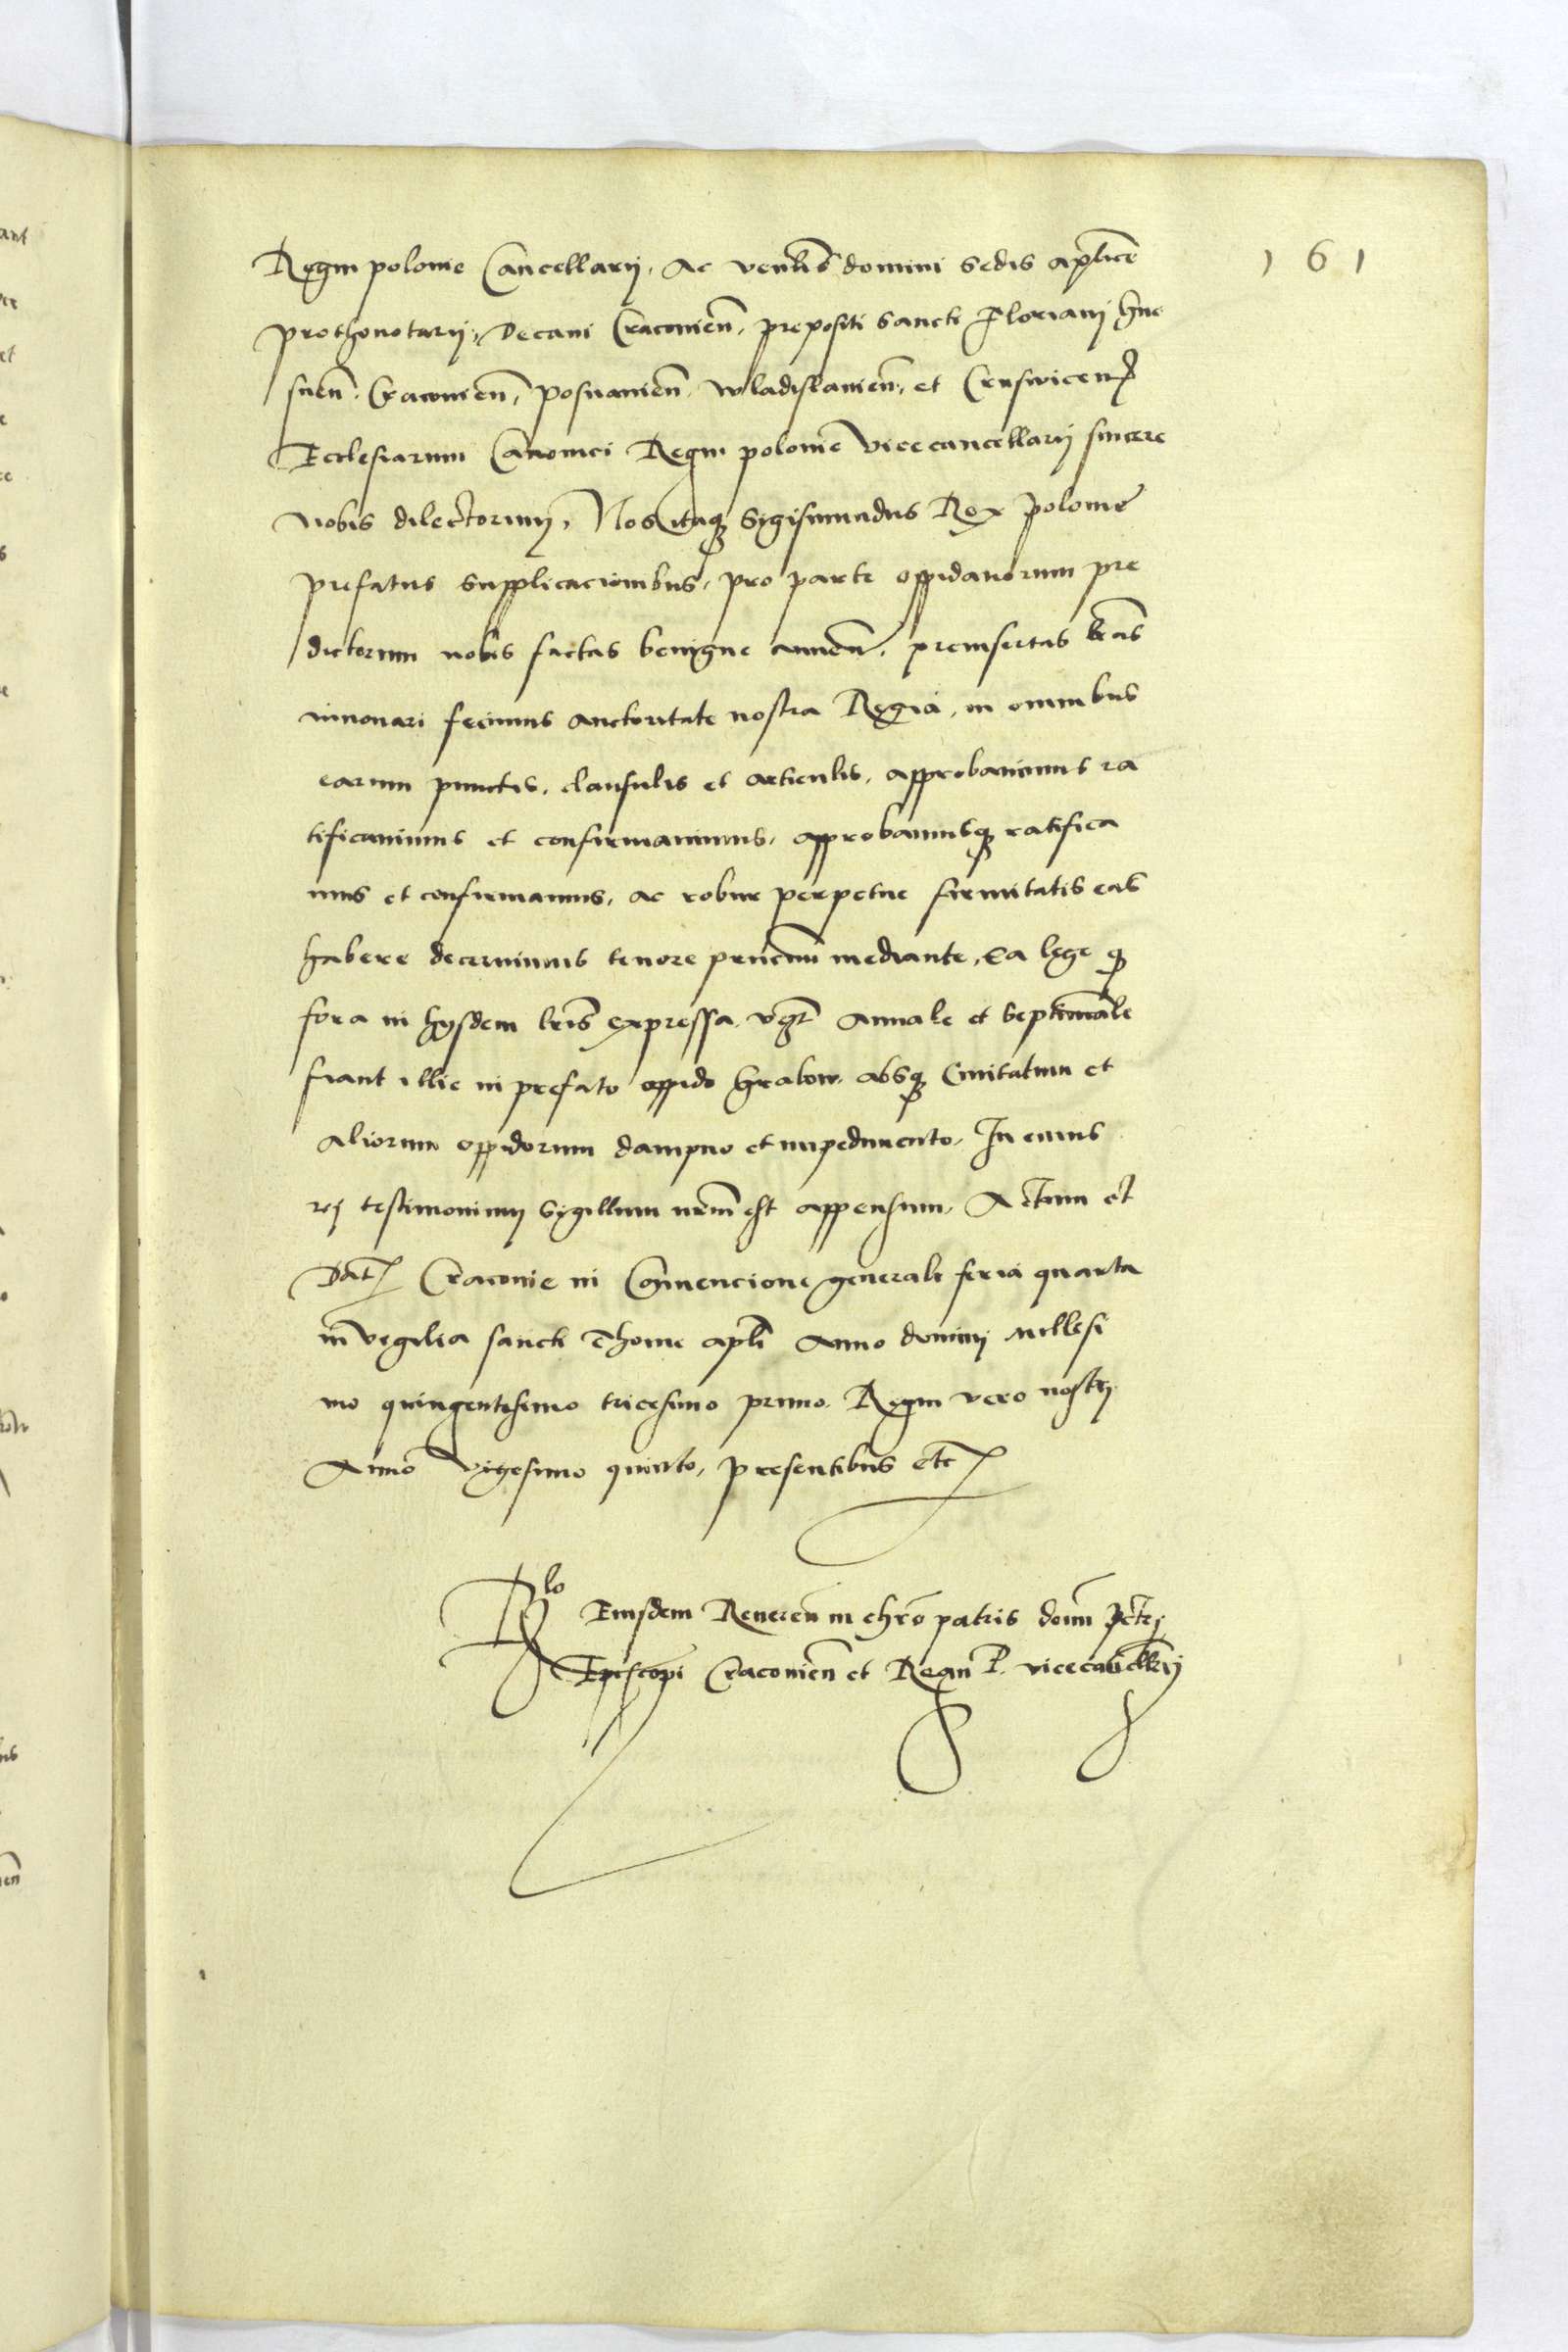 161
Regni polonie Cancellarij, Ac venlis domini Sedis aplice
prothonotarij, Decani Cracovien, prepositi Sancti Floriani Gne
snen, Cracovien, Posnanien, Wladislavien, et Cruswicen
Ecclesiarum Canonici Regni polonie vicecancellarij sincere
nobis dilectorum, Nos itaq Sigismundus Rex polonie
prefatus supplicacionibus, pro parte oppidanorum pre
dictorum nobis factas benigne annuen, preinsertas lras
innouari fecimus auctoritate nostra Regia, in omnibus
earum punctis, clausulis et articulis, approbauimus ra
tificauimus et confirmauimus, approbamusq ratifica
mus et confirmamus, ac robur perpetue firmitatis eas
habere decernimus tenore prncium mediante, Ea lege q
fora in hysdem lris expressa, vgr Annale et Septimanale
fiant illic in prefato oppido Grabow, absq Ciuitatum et
aliorum oppidorum dampno et impedimento, In cuius
rei testimonium Sygillum nrm est appensum, Actum et
Dat Cracovie in Conuencione generali feria quarta
in vigilia sancti Thome apli Anno domini Millesi
mo quingentesimo tricesimo primo, Regni vero nostri
Anno vigesimo quinto, presentibus etc
Rlo Eiusdem Reueren in chro patris domi Petri
Episcopi Cracovien et Regni P. vicecancellrij